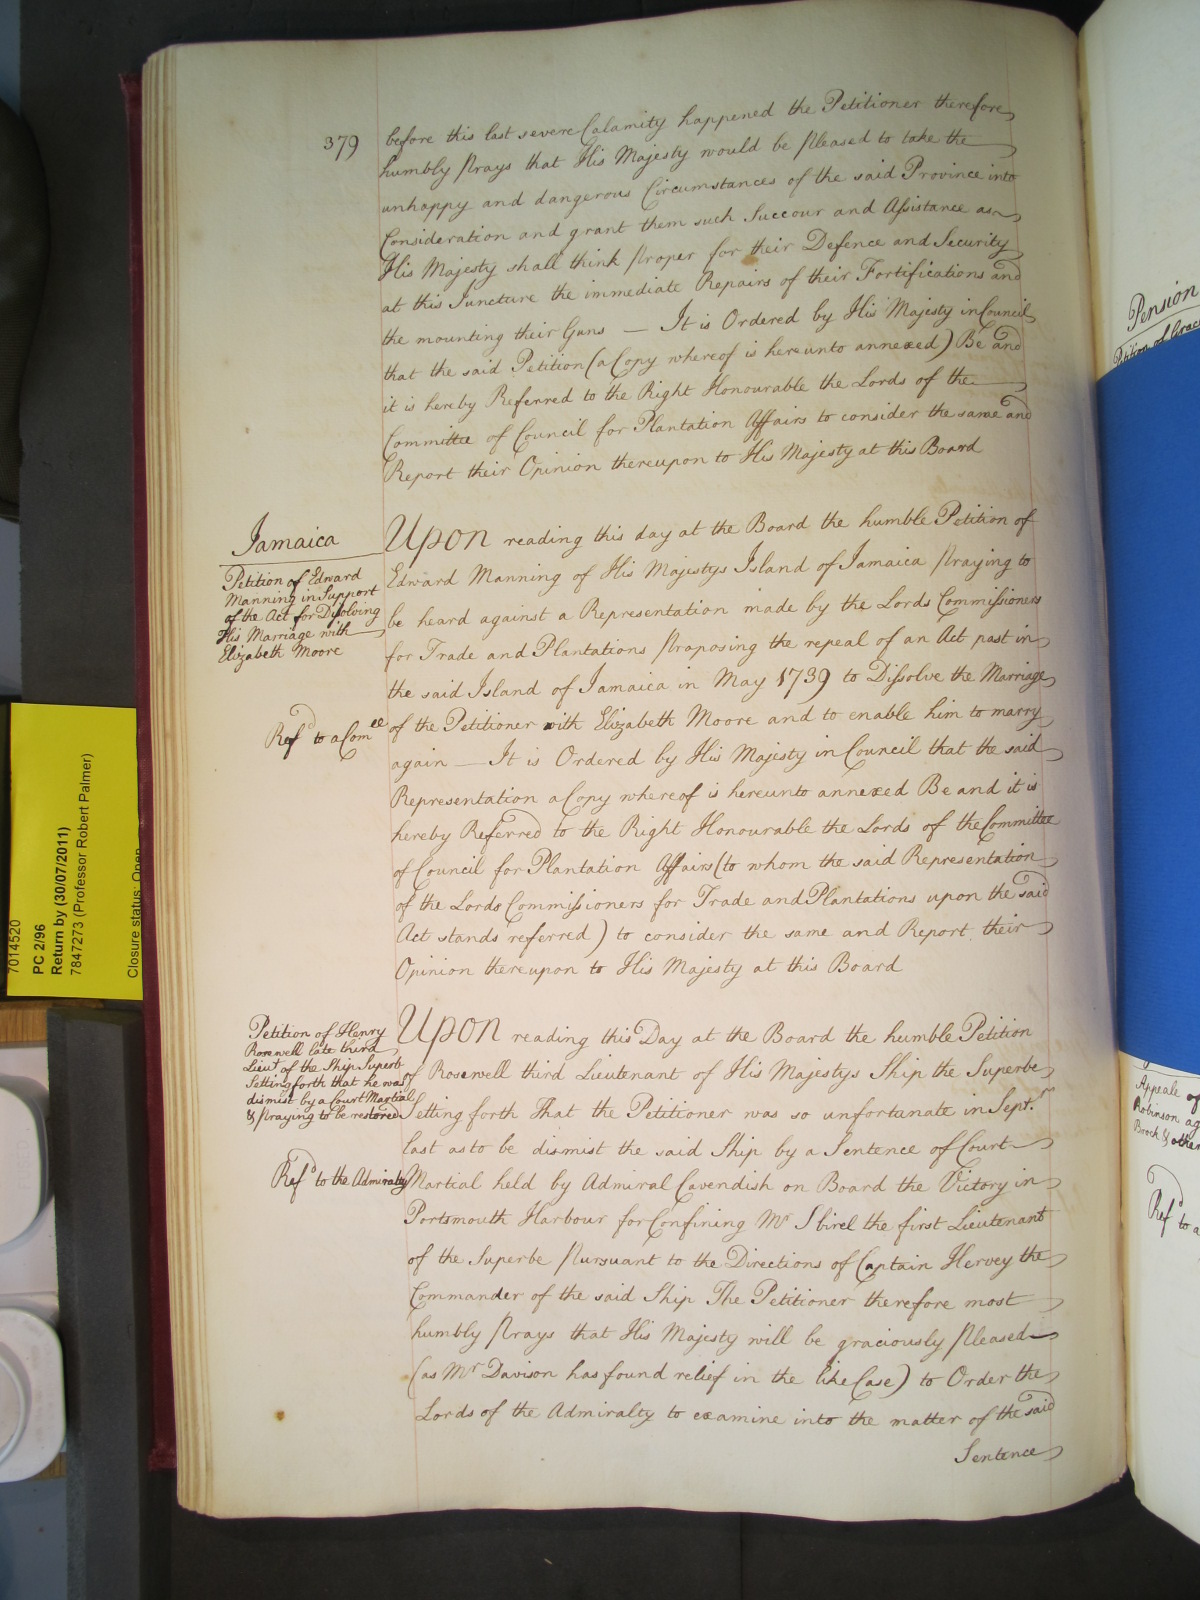 379
before this last severe Calamity happened the Petitioner therefore
humbly prays that His Majesty would be pleased to take the
unhappy and dangerous Circumstances of the said Province into
Consideration and grant them such Succour and Assistance as
His Majesty shall think proper for their Defence and Security
at this Juncture the immediate Repairs of their Fortifications and
the mounting their Guns — It is Ordered by His Majesty in Council
that the said Petition (a Copy whereof is hereunto annexed) Be and
it is hereby Referred to the Right Honourable the Lords of the
Committee of Council for Plantation Affairs to consider the same and
Report their Opinion thereupon to His Majesty at this Board
Jamaica
Petition of Edward
Manning in Support
of the Act for Disolving
His Marriage with
Elizabeth Moore
Refd to a Comee
Upon reading this day at the Board the humble Petition of
Edward Manning of His Majestys Island of Jamaica praying to
be heard against a Representation made by the Lords Commissioners
for Trade and Plantations proposing the repeal of an Act past in
the said Island of Jamaica in May 1739 to Dissolve the Marriage
of the Petitioner with Elizabeth Moore and to enable him to marry
again — It is Ordered by His Majesty in Council that the said
Representation a Copy whereof is hereunto annexed Be and it is
hereby Referred to the Right Honourable the Lords of the Committee
of Council for Plantation Affairs (to whom the said Representation
of the Lords Commissioners for Trade and Plantations upon the said
Act stands referred) to consider the same and Report their
Opinion thereupon to His Majesty at this Board
Petition of Henry
Rosewell late third
Lieut of the Ship Superb
Setting forth that he was
dismist by a Court Martial
& praying to be restored
Refd to the Admiralty
Upon reading this Day at the Board the humble Petition
of Rosewell third Lieutenant of His Majestys Ship the Superbe
Setting forth That the Petitioner was so unfortunate in Septr
last as to be dismist the said Ship by a Sentence of Court
Martial held by Admiral Cavendish on Board the Victory in
Portsmouth Harbour for Confining Mr Hirel the first Lieutenant
of the Superbe Pursuant to the Directions of Captain Hervey the
Commander of the said Ship The Petitioner therefore most
humbly prays that His Majesty will be graciously pleased
(as Mr Davison has found relief in the like Case) to Order the
Lords of the Admiralty to examine into the matter of the said
Sentence
7014520
PC 2/96
Return by (30/07/2011)
7847273 (Professor Robert Palmer)
Closure status: Open
Pension
Petition of Grace
Appeale of
Robinson ag
Brock & other
Refd to a